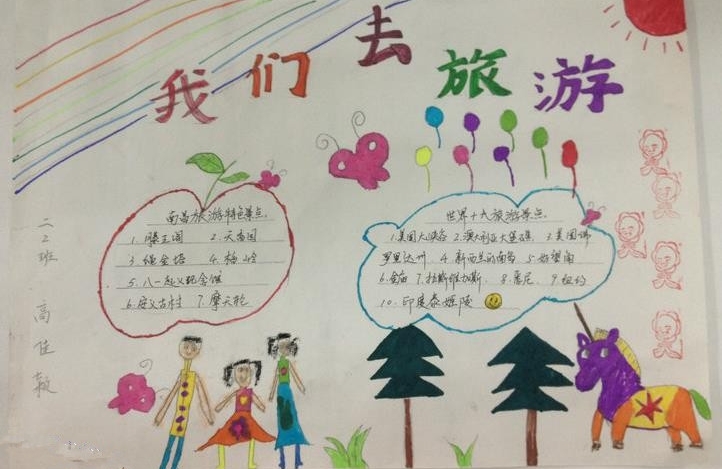 我们去旅游
南昌旅游特色景点
1. 滕王阁 2. 天香园
3 绳金塔 4. 梅岭
5. 八一起义纪念馆
6. 安义古村 7. 摩天轮
世界十大旅游景点.
1. 美国大峡谷 2. 澳大利亚大堡礁. 3. 美国佛
罗里达州 4. 新西兰的南岛 5. 好望角
6. 金庙 7. 拉斯维加斯. 8. 悉尼. 9. 纽约
10. 印度泰姬陵
二2班 高佳颖